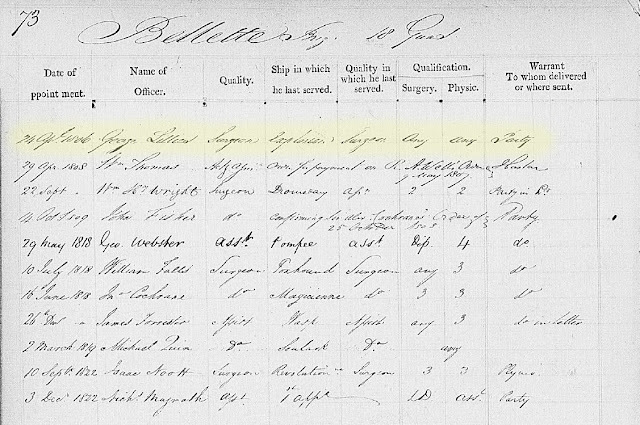 73
Bellette Brig 18 Guns
Date of ppointment. Name of Officer. Quality. Ship in which he last served. Quality in which he last served. Qualification. Surgery. Physic. Warrant To whom delivered or where sent.
24 Apl 1806 George Surgeon Explosion Surgeon Any any Party
29 Apr 1808 Wm Thomas
22 Sept " Wm Wright Surgeon Dromedary 2 2
14 Oct 1809 John Fisher do confirming Order of Party
25 October
29 May 1818 Geo. Webster asst. Pompee asst Dip. 4 do
10 July 1818 William Surgeon Foxhound Surgeon any 3 do
16 June 1818 Jno Cochrane do Magicienne do 3 3 do
26 Dec " James Forrester Assist Wasp Assist any 3 do in letter
2 March 1819 Michael Quin Do Do any
10 Septr. 1822 Isaac Noott Surgeon Revolutionre Surgeon 3 3 Plymo.
3 Decr 1822 Nichs Magrath 1st appt. Party